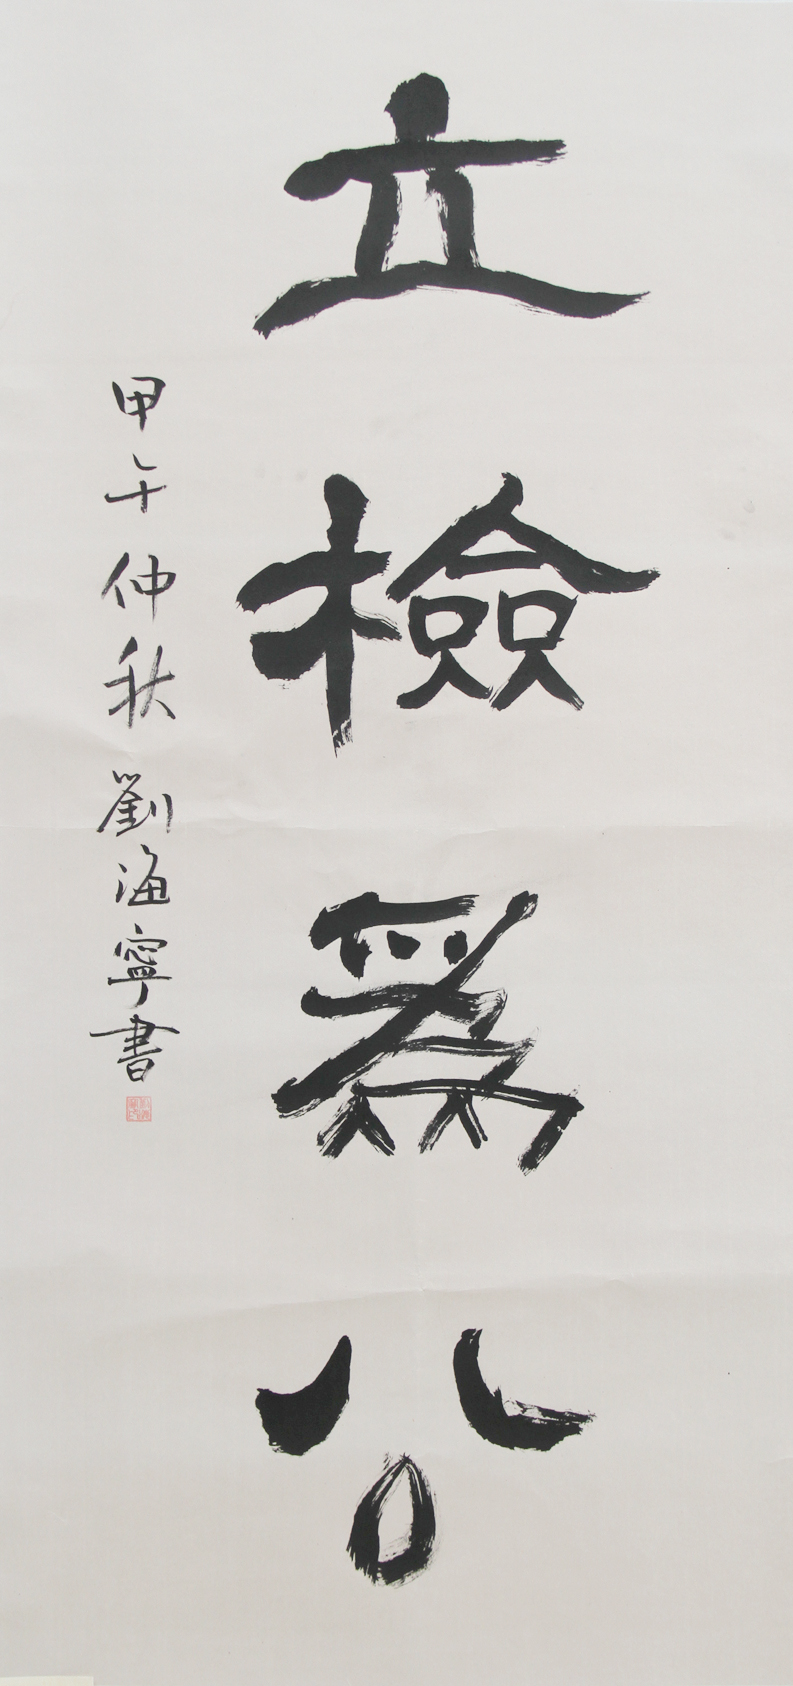 立檢爲公
甲午仲秋劉海寧書